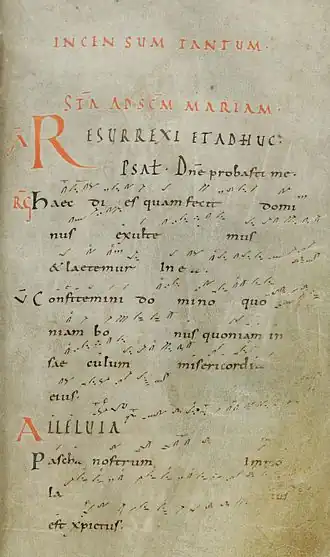 INCENSUM TANTUM.
STA AD SCM MARIAM.
A RESURREXI ET ADHUC.
PSAL. Dne probasti me.
RG Haec di es quam fecit domi
nus exulte mus
& laetemur In e
V Confitemini do mino quo
niam bo nus quoniam in
sae culum misericordi
eius.
ALLELUIA
Pascha nostrum Immo
la tus
est xpictus.